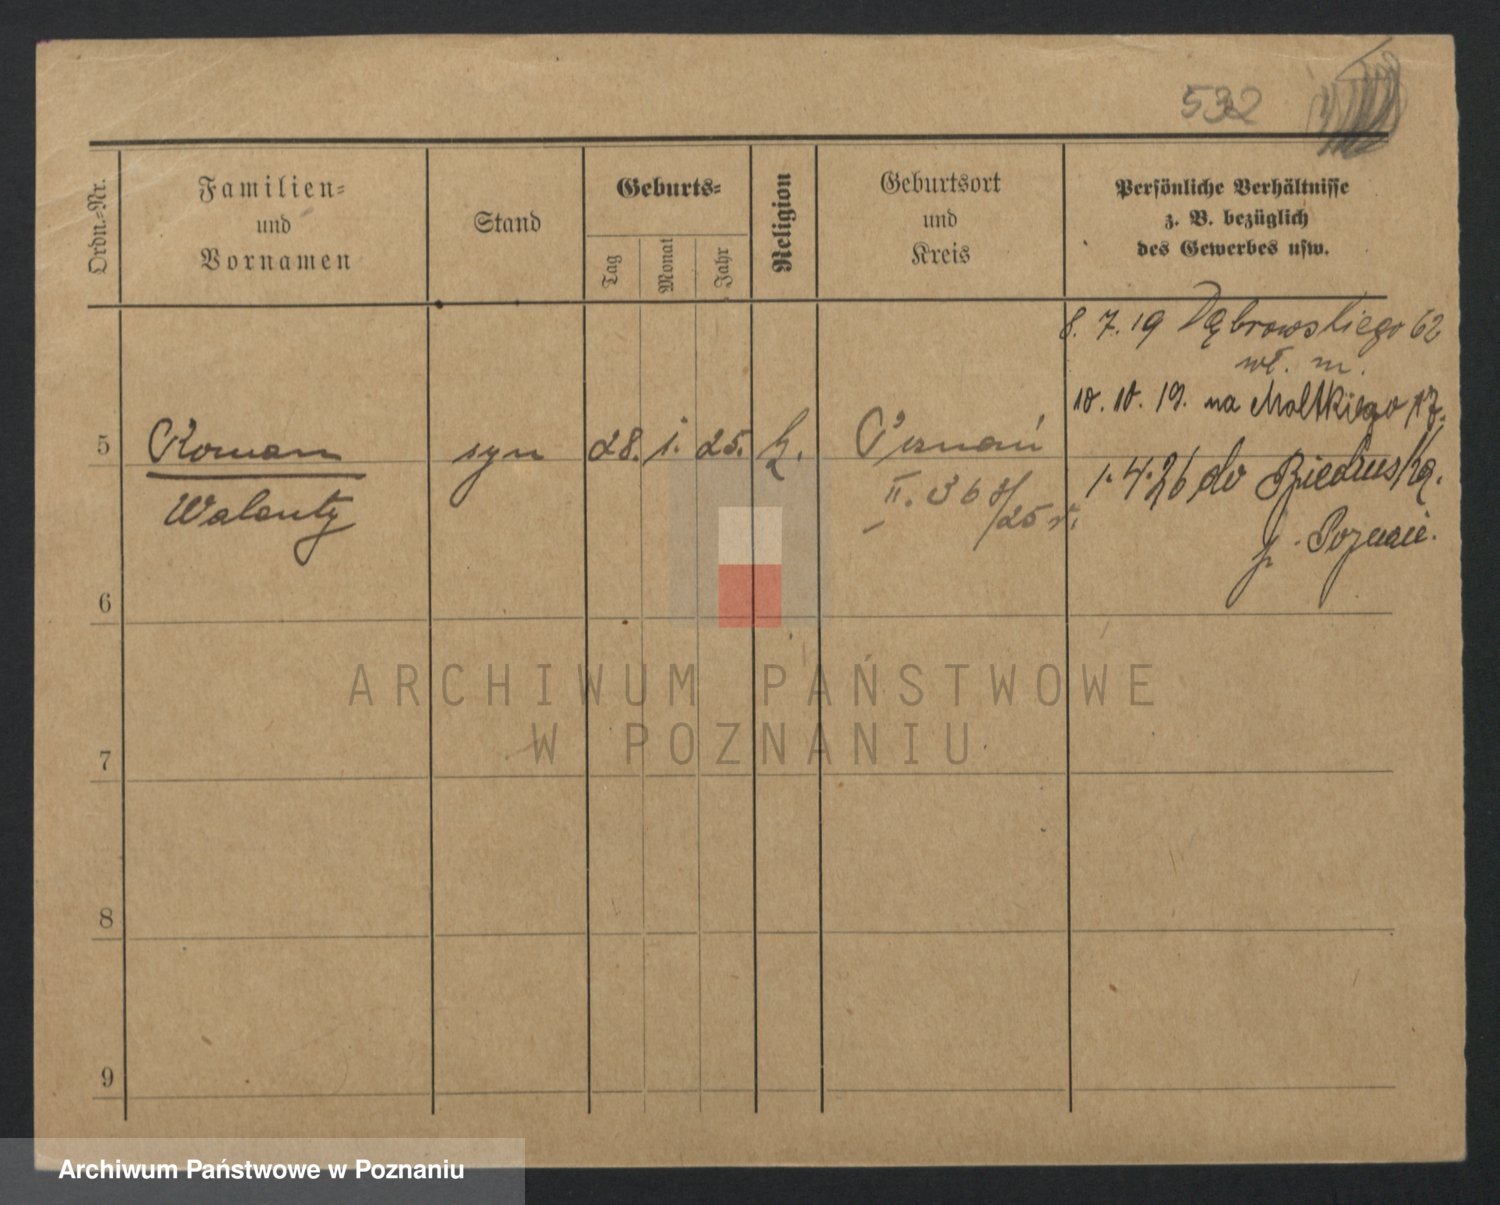 532
Ordn.-Nr.
Familien-
und
Vornamen
Stand
Geburts-
Tag
Monat
Jahr
Religion
Geburtsort
und
Kreis
Persönliche Verhältnisse
z. B. bezüglich
des Gewerbes usw.
8. 7. 19 Dąbrowskiego 62
wł. m.
10. 10. 19. na Moltkiego 17.
5 Roman syn 28. 1. 25. k. Poznań
Walenty II. 368/25 r.
1. 4. 26 do Biedruska.
p. Poznań.
6
7
8
9
ARCHIWUM PAŃSTWOWE
W POZNANIU
Archiwum Państwowe w Poznaniu